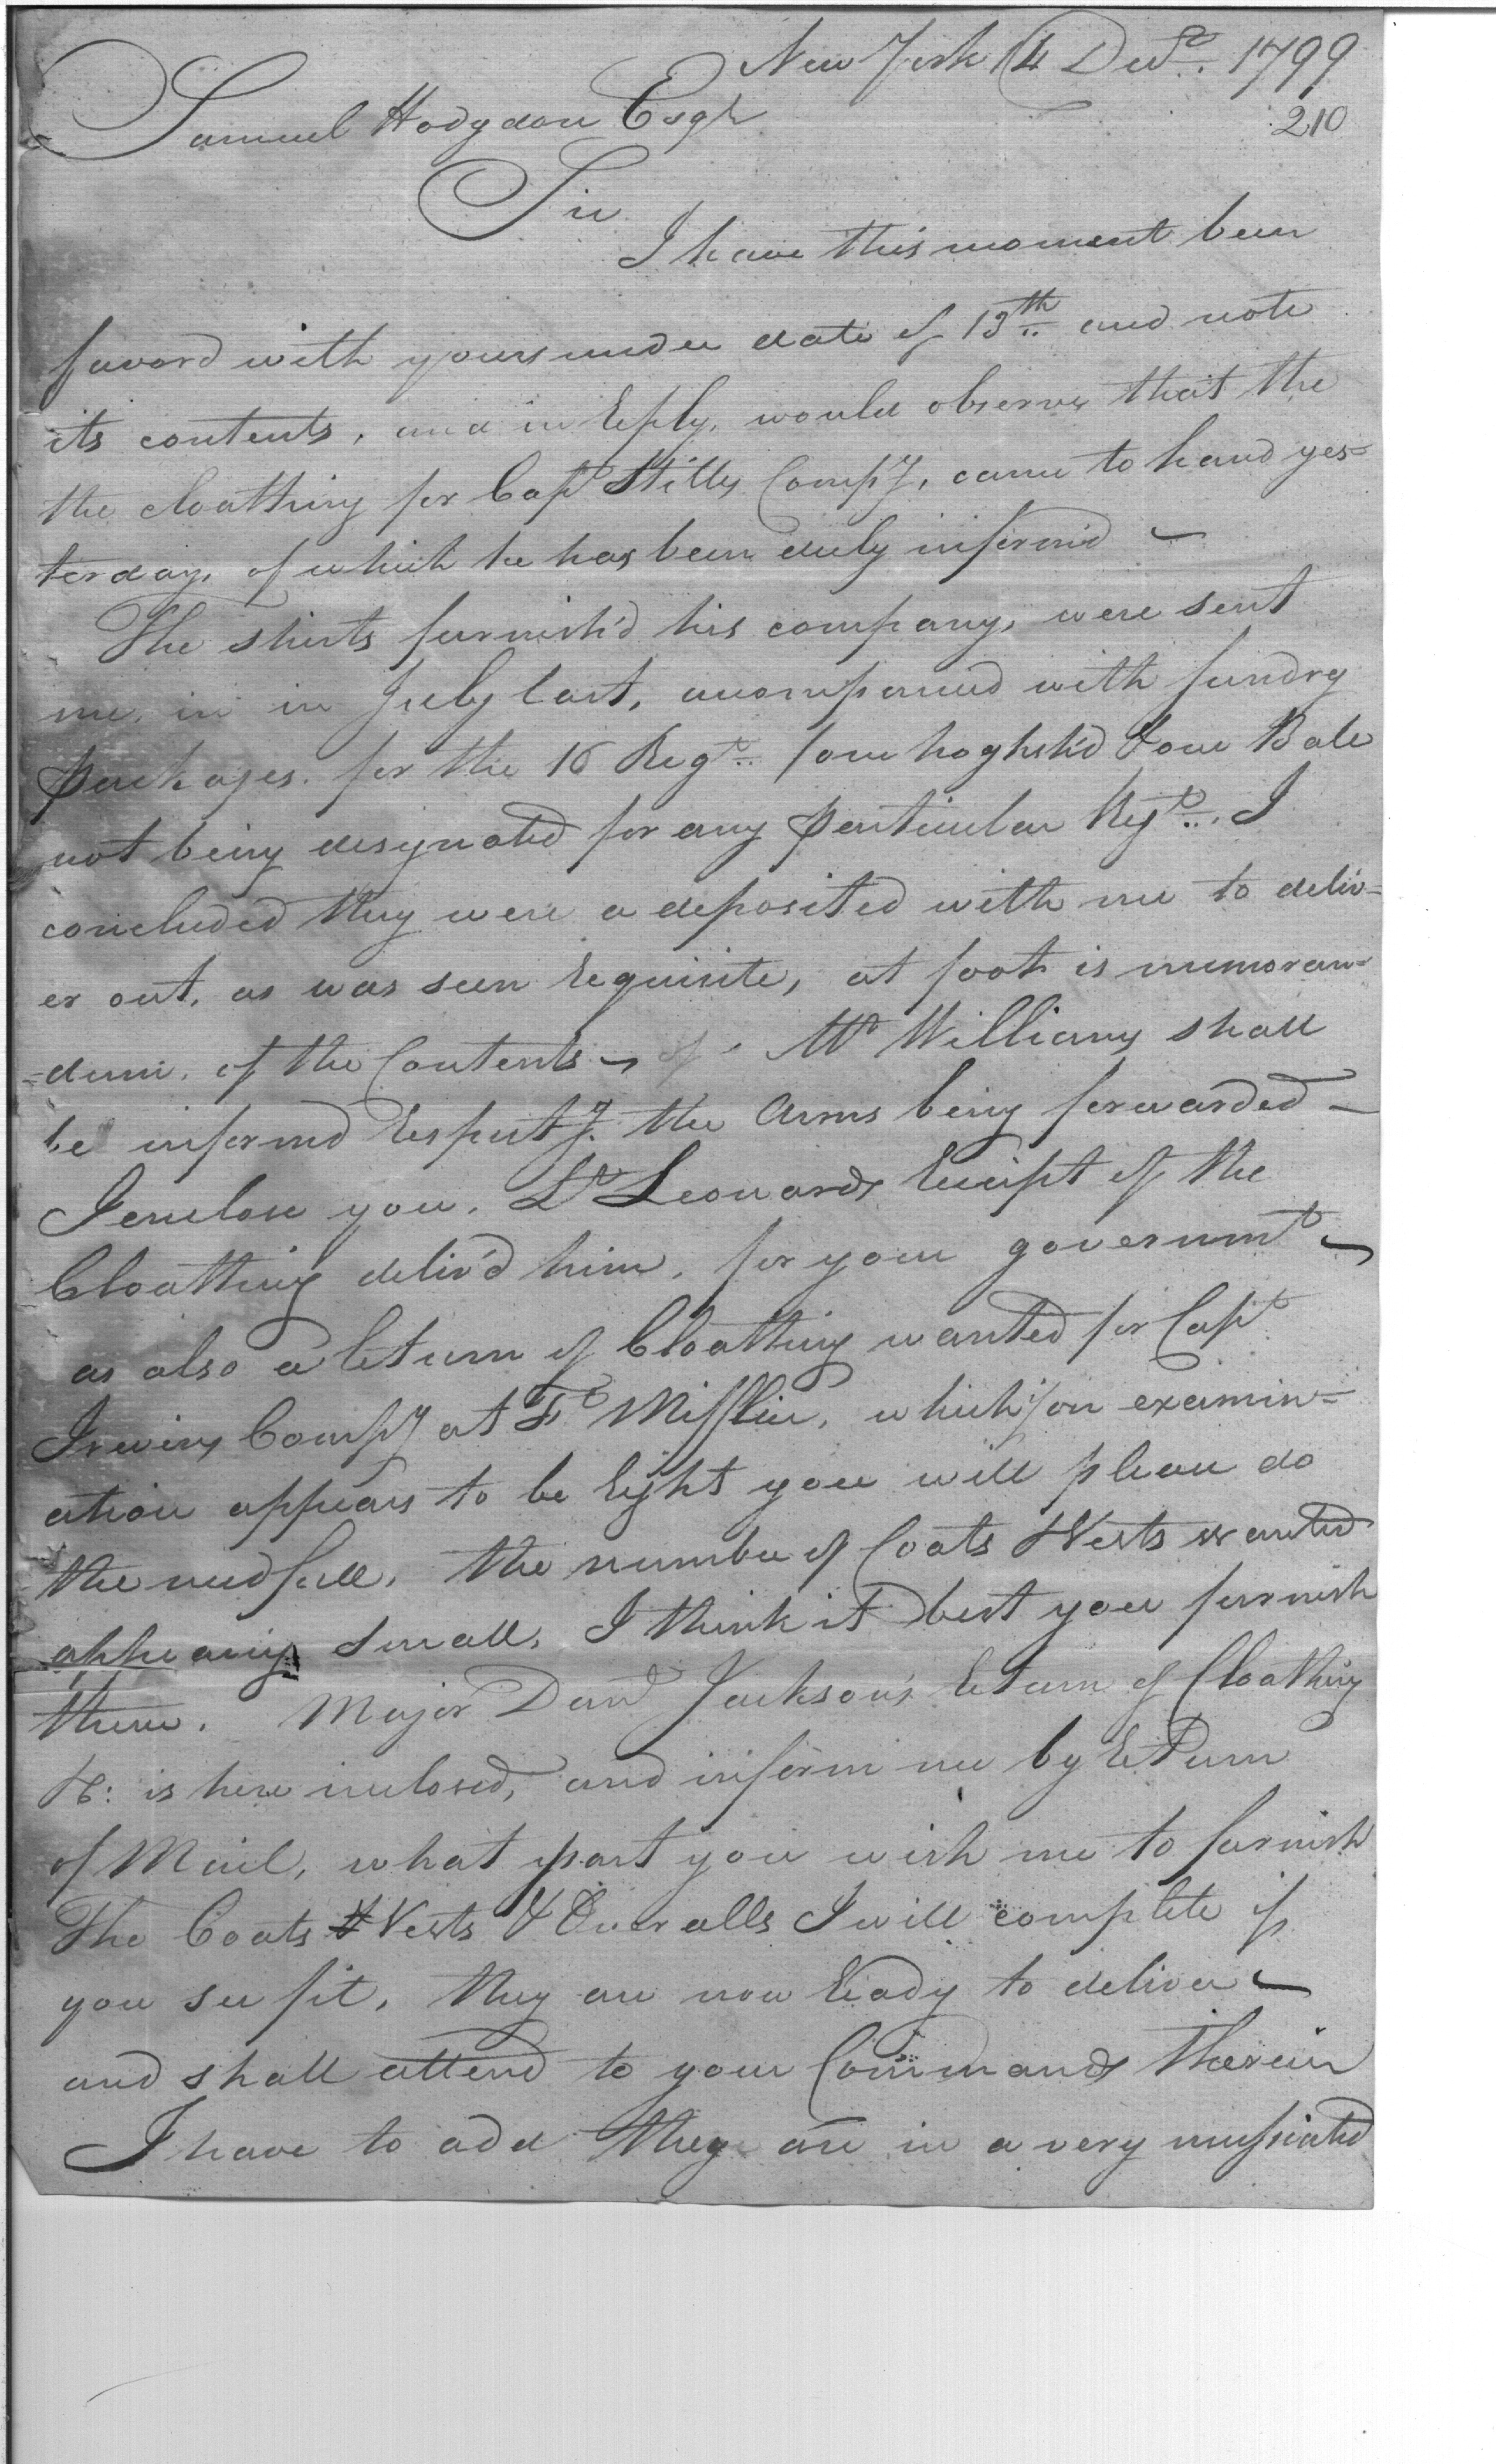 New York 14 Decr. 1799
210
Samuel Hodgdon Esqr
Sir
I have this moment been
favord with yours under date of 13th and note
its contents, and in reply, would observe that the
the cloathing for Capt Stilles Compy, came to hand yes-
terday, of which he has been duly inform'd
The shirts furnish'd his company, were sent
me in in July last, accompanied with sundry
packages for the 16 Regt. / one hoghshd & one Bale
not being designated for any particular Regt. I
concluded they were a deposited with me to deliv-
er out, as was seen requisite, at foot is memoran-
=dum, of the Contents of Mr Williams shall
be informd respectg. the Arms being forwarded -
I enclose you, Lt Leonards receipt of the
Cloathing deliv'd him, for your governmt
as also a return of Cloathing wanted for Capt
Irwins Compy at Ft Mifflin, which on examin-
ation appears to be right you will please do
the needfull, the number of Coats & Vests wanted
appearing small, I think it best you furnish
them. Major Danl Jackson's return of Cloathing
&c: is here inclosed, and inform me by return
of Mail, what part you wish me to furnish
The Coats & Vests & Overalls I will complete if
you see fit, they are now ready to deliver
and shall attend to your Commands therein
I have to add they are in a very